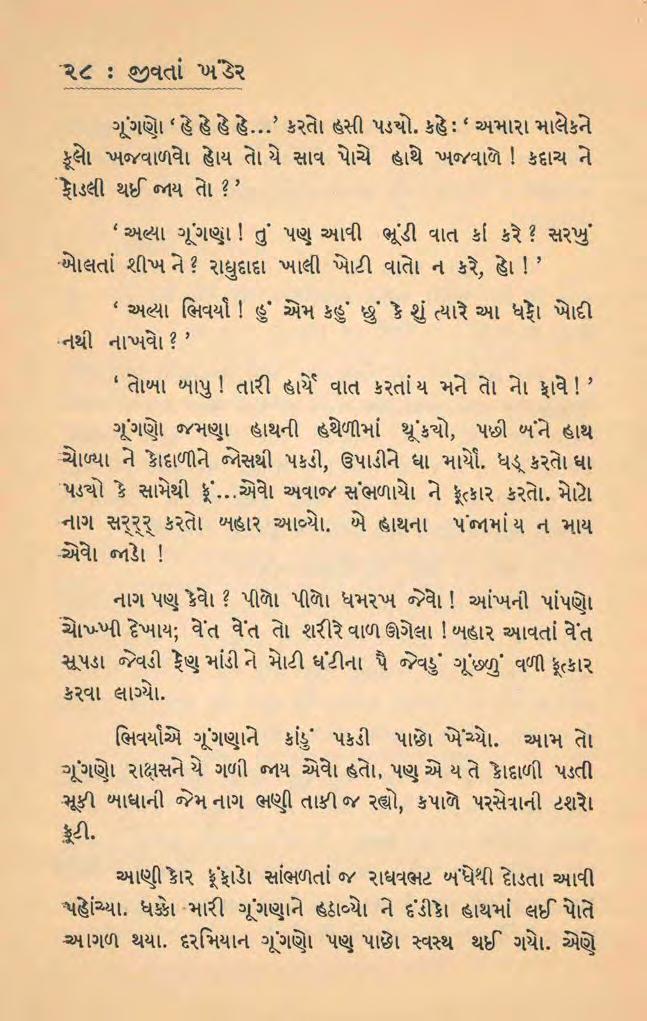 ૨૮ : જીવતાં ખંડેર
ગૂંગણો ‘ હે હે હે હે...’ કરતો હસી પડ્યો. કહે : ‘ અમારા માલેકને
કૂલો ખજવાળવો હોય તો યે સાવ પોચે હાથે ખજવાળે ! કદાચ ને
ફોડલી થઈ જાય તો ? ’
‘ અલ્યા ગૂંગણા ! તું પણ આવી ભૂંડી વાત કાં કરે ? સરખું
બોલતાં શીખ ને ? રાધુદાદા ખાલી ખોટી વાતો ન કરે, હો ! ’
‘ અલ્યા ભિવર્યા ! હું એમ કહું છું કે શું ત્યારે આ ધફો ખોદી
નથી નાખવો ? ’
‘ તોબા બાપુ ! તારી હાર્યે વાત કરતાં ય મને તો નો ફાવે ! ’
ગૂંગણો જમણા હાથની હથેળીમાં થૂંક્યો, પછી બંને હાથ
ચોળ્યા ને કોદાળીને જોસથી પકડી, ઉપાડીને ઘા માર્યો. ધડ્ કરતો ઘા
પડ્યો કે સામેથી ફૂં...એવો અવાજ સંભળાયો ને ફૂત્કાર કરતો. મોટો
નાગ સરૂરૂરૂ કરતો બહાર આવ્યો. બે હાથના પંજામાં ય ન માય
એવો જાડો !
નાગ પણ કેવો ? પીળો પીળો ધમરખ જેવો ! આંખની પાંપણો
ચોખ્ખી દેખાય; વેંત વેંત તો શરીરે વાળ ઊગેલા ! બહાર આવતાં વેંત
સૂપડા જેવડી ફેણ માંડી ને મોટી ઘંટીના પૈ જેવડું ગૂંછળું વળી ફૂત્કાર
કરવા લાગ્યો.
ભિવર્યાએ ગૂંગણાને કાંડું પકડી પાછો ખેંચ્યો. આમ તો
ગૂંગણો રાક્ષસને યે ગળી જાય એવો હતો, પણ એ ય તે કોદાળી પડતી
મૂકી બાઘાની જેમ નાગ ભણી તાકી જ રહ્યો, કપાળે પરસેવાની ટશરો
ફૂટી.
આણી કોર ફૂંફાડો સાંભળતાં જ રાઘવભટ બંધેથી દોડતા આવી
પહોંચ્યા. ધક્કો મારી ગૂંગણાને હઠાવ્યો ને દંડીકો હાથમાં લઈ પોતે
આગળ થયા. દરમિયાન ગૂંગણો પણ પાછો સ્વસ્થ થઈ ગયો. એણે